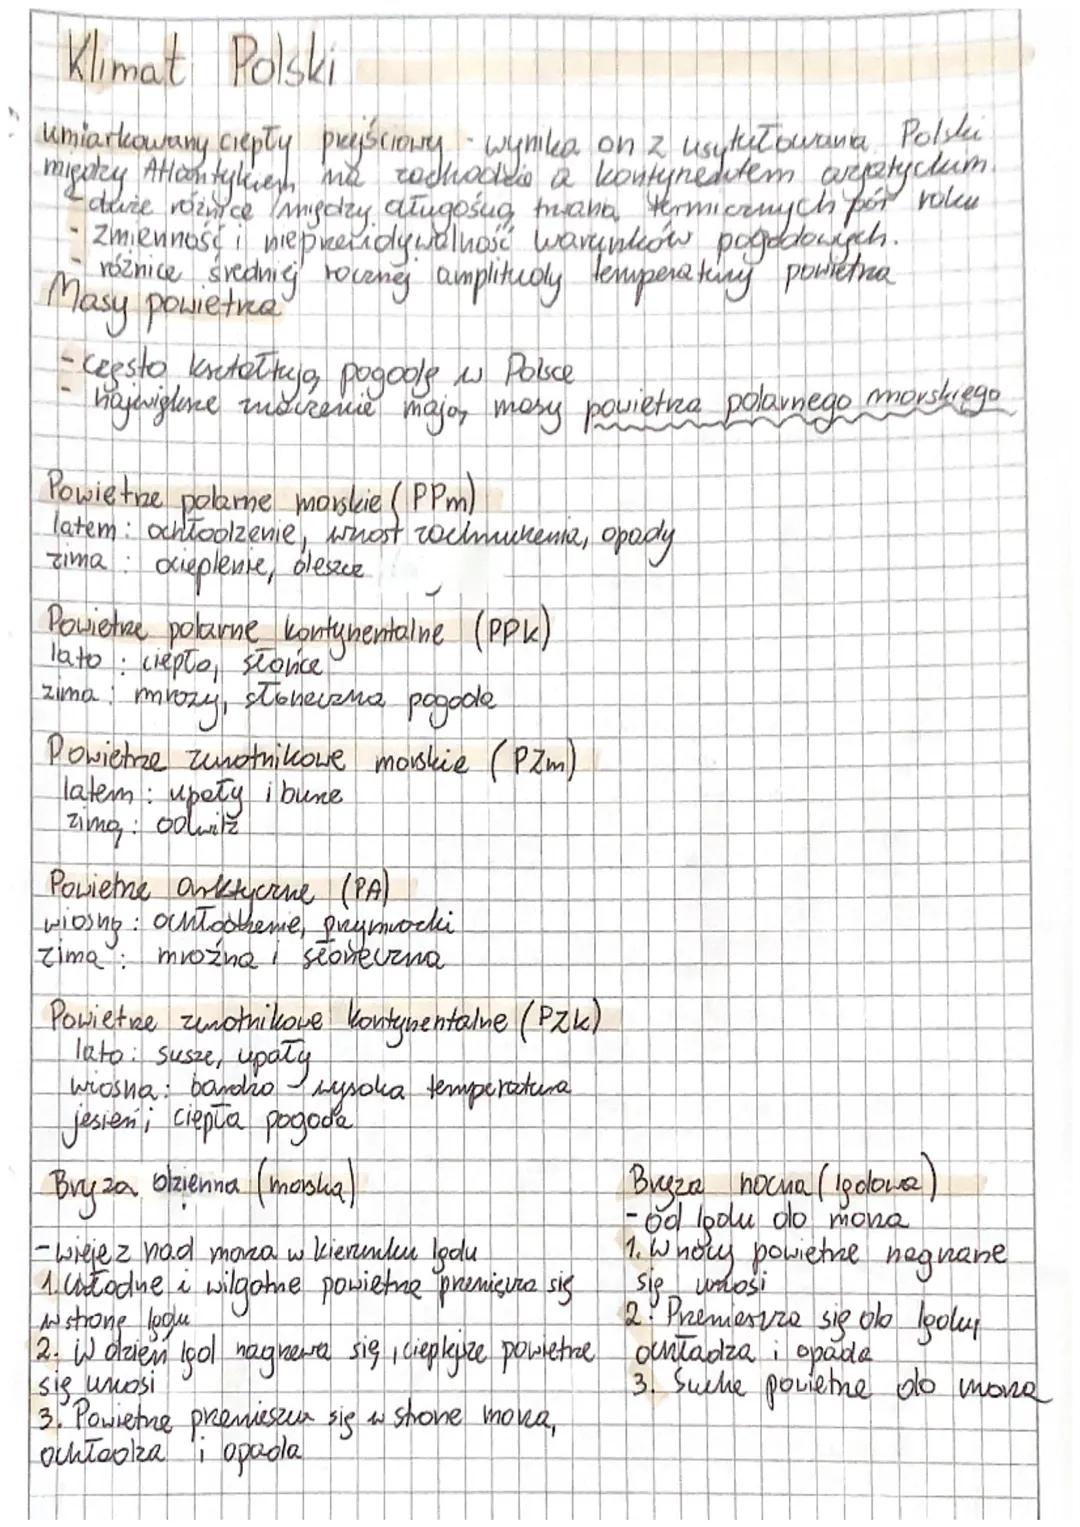 Klimat Polski
umiarkowany ciepły przejściowy - wynika on z usytułowania Polski
między Atlantykiem na zachodzie a kontynentem azjatyckim.
- duże różnice między długością trwania termicznych pór roku
- zmienność i nieprzewidywalność warunków pogodowych.
- różnice średniej rocznej amplitudy temperatury powietrza
Masy powietrza
- często kształtują pogodę w Polsce
- największe znaczenie mają masy powietrza polarnego morskiego
Powietrze polarne morskie (PPm)
latem: ochłodzenie, wzrost zachmurzenia, opady
zima: ocieplenie, deszcze
Powietrze polarne kontynentalne (PPk)
lato: ciepło, słońce
zima: mrozy, słoneczna pogoda
Powietrze zwrotnikowe morskie (PZm)
latem: upały i burze
zimą: odwilż
Powietrze arktyczne (PA)
wiosną: ochłodzenie, przymrozki
zima: mroźna i słoneczna
Powietrze zwrotnikowe kontynentalne (PZk)
lato: susze, upały
wiosna: bardzo wysoka temperatura
jesień; ciepła pogoda
Bryza dzienna (morska)
- wieje z nad morza w kierunku lądu
1. Chłodne i wilgotne powietrze przemieszcza się
w stronę lądu
2. W dzień ląd nagrzewa się, cieplejsze powietrze
się unosi
3. Powietrze przemieszcza się w stronę morza,
ochładza i opada
Bryza nocna (lądowa)
- od lądu do morza
1. W nocy powietrze nagrzane
się unosi
2. Przemieszcza się do lądu,
ochładza i opada
3. Suche powietrze do morza